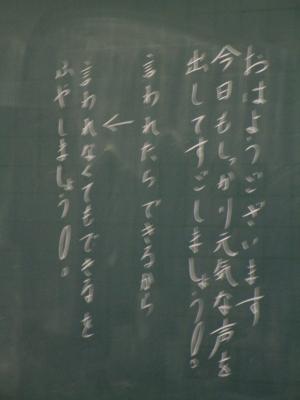 おはようございます
今日もしっかり元気な声を
出してすごしましょう!。
言われたらできるから
←
言われなくてもできるを
ふやしましょう!。